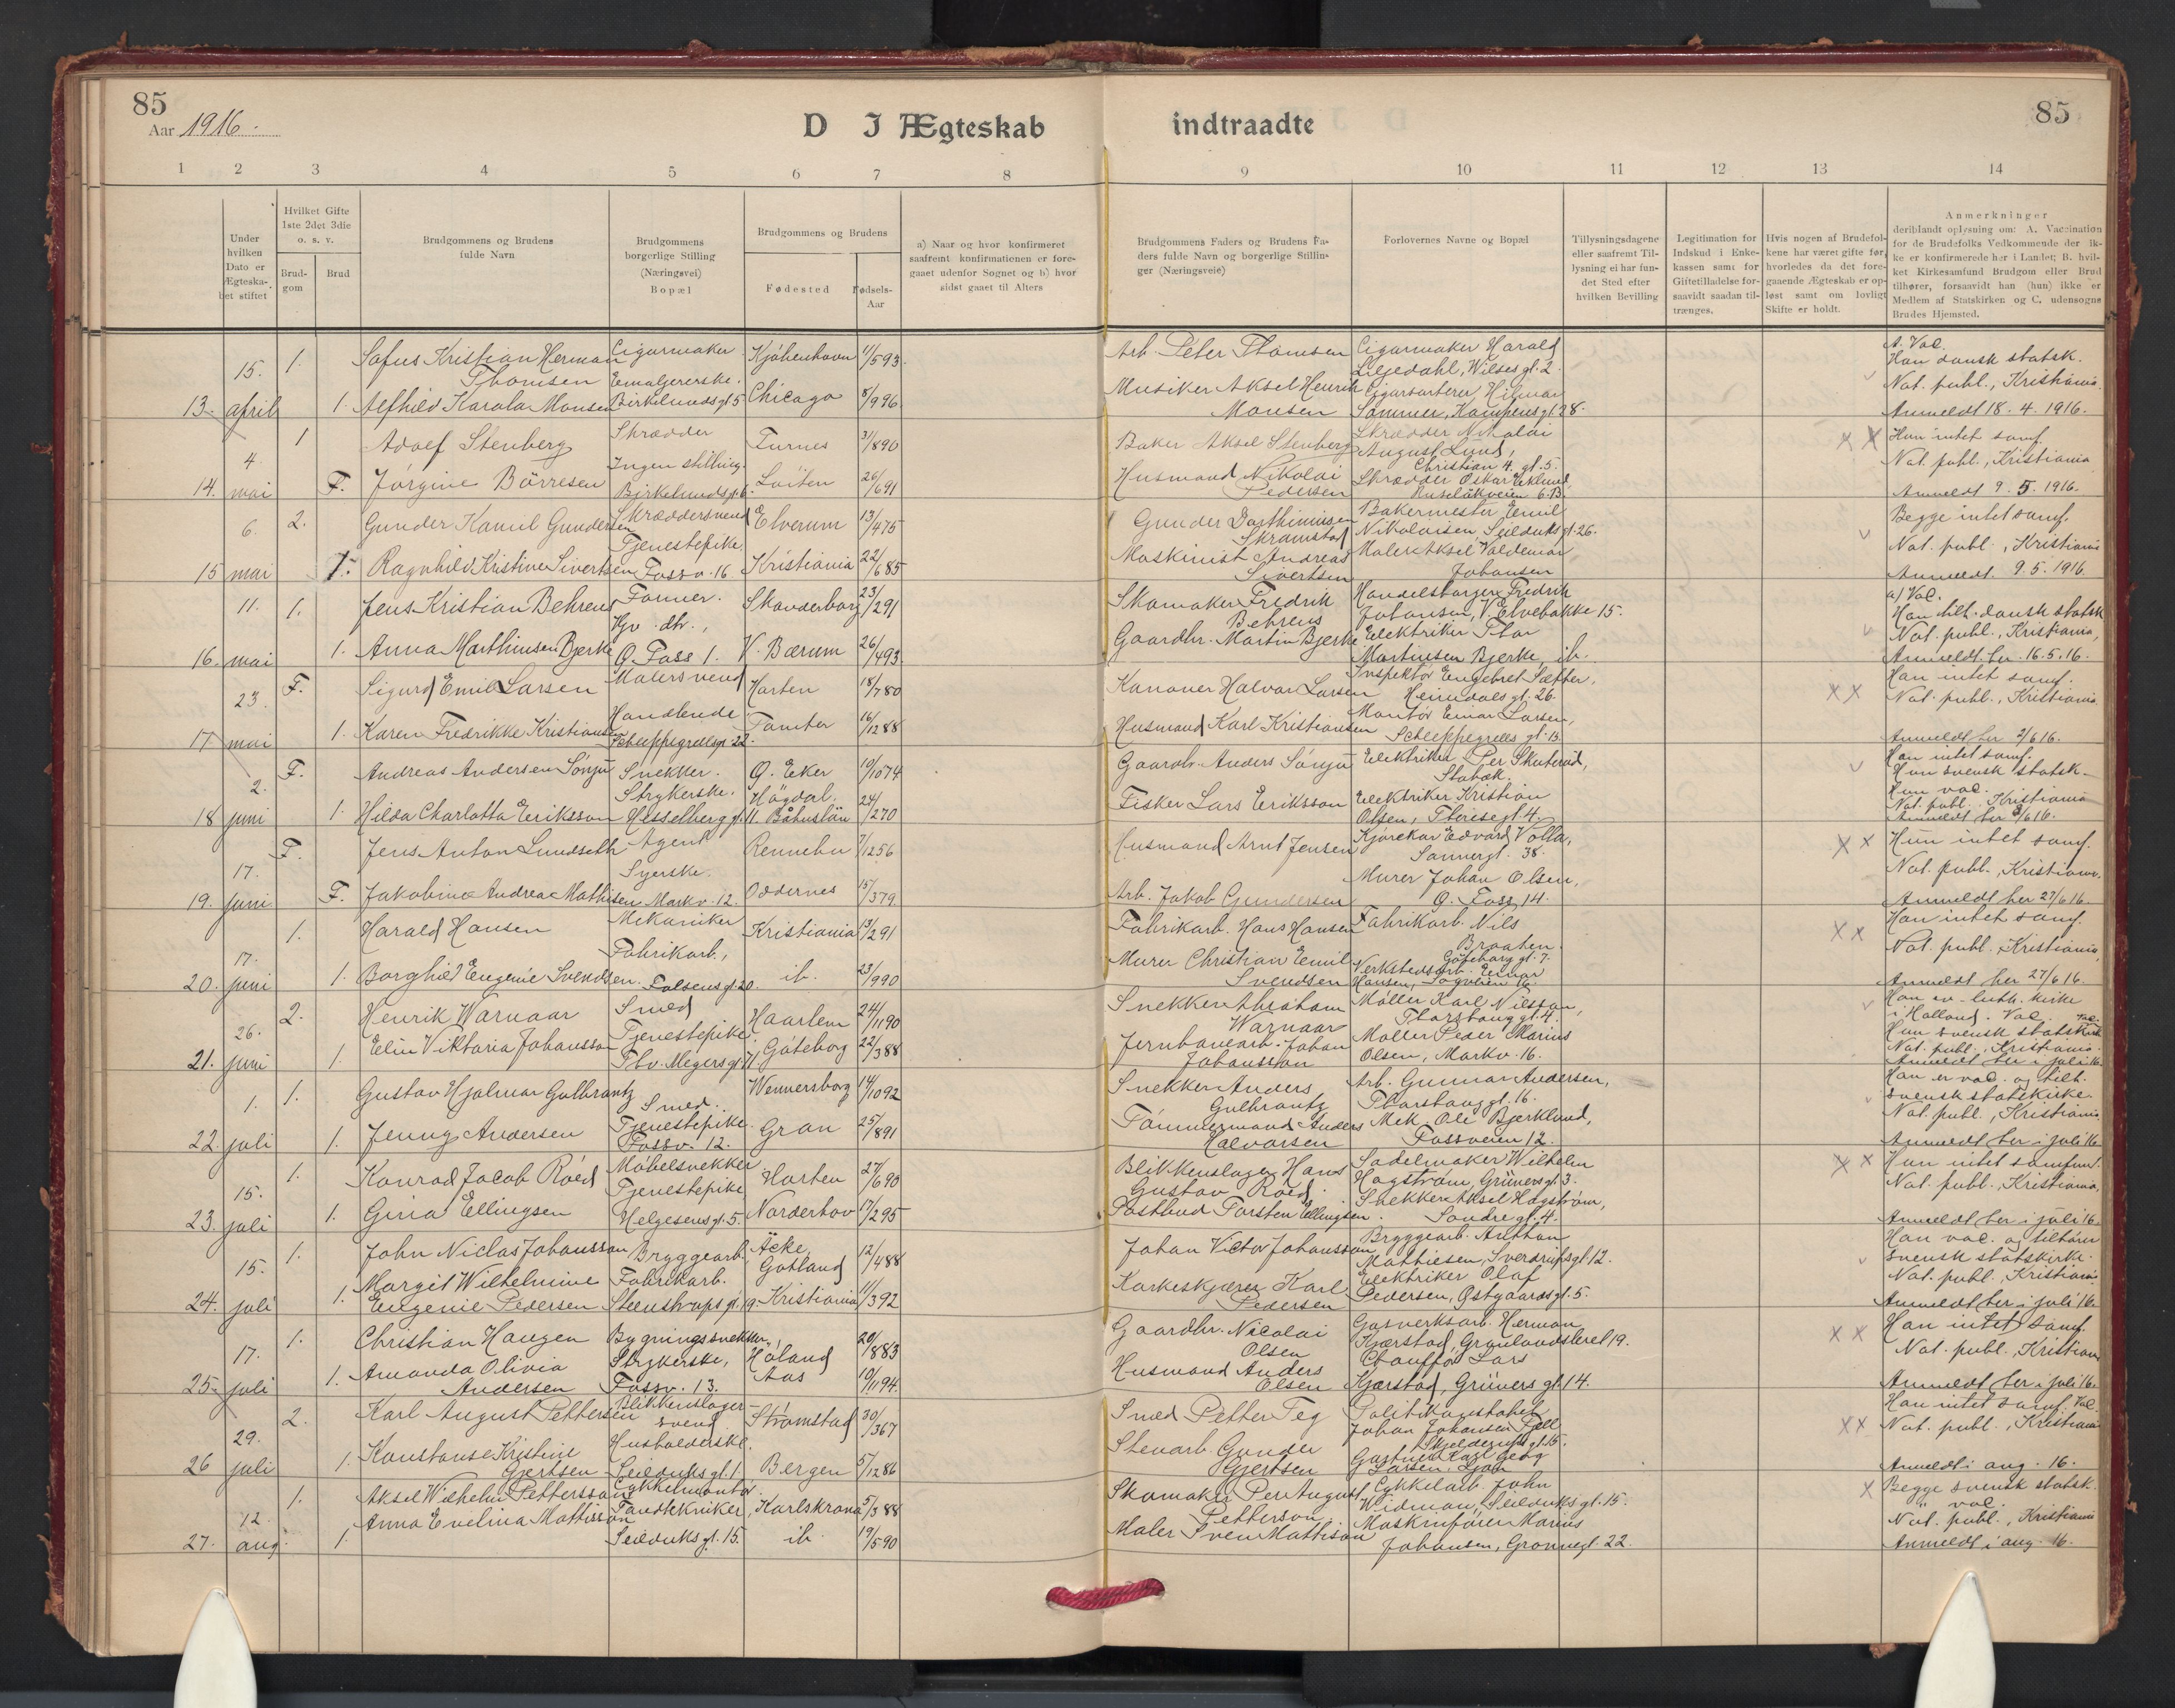 85
Aar 1916.
D I Ægteskab
indtraadte
85
1 2 3 4 5 6 7 8 9 10 11 12 13 14
Under hvilken Dato er Ægteska-bet stiftet
Hvilket Gifte 1ste 2det 3die o. s. v.
Brud-gom
Brud
Brudgommens og Brudens fulde Navn
Brudgommens borgerlige Stilling (Næringsvei) Bopæl
Brudgommens og Brudens
Fødested
Fødsels-Aar
a) Naar og hvor konfirmeret saafremt konfirmationen er fore-gaaet udenfor Sognet og b) hvor sidst gaaet til Alters
Brudgommens Faders og Brudens Fa-ders fulde Navn og borgerlige Stillin-ger (Næringsveie)
Forlovernes Navne og Bopæl
Tillysningsdagene eller saafremt Til-lysning ei har fun-det Sted efter hvilken Bevilling
Legitimation for Indskud i Enke-kassen samt for Giftetilladelse for-saavidt saadan til-trænges.
Hvis nogen af Brudefol-kene har været gifte før, hvorledes da det fore-gaaende Ægteskab er op-løst samt om lovligt Skifte er holdt.
Anmerkninger deriblandt oplysning om: A. Vaccination for de Brudefolks Vedkommende der ik-ke er konfirmerede her i Landet; B. hvil-ket Kirkesamfund Brudgom eller Brud tilhører, forsaavidt han (hun) ikke er Medlem af Statskirken og C, udensogns Brudes Hjemsted.
15. 1. Sofus Kristian Herman Thomsen Cigarmaker Kjøbenhavn 11/593 Arb. Peter Thomsen Cigarmaker Harald Liljedahl, Wilses gt. 2. A. Vac. Han dansk statsk.
13. april 1. Alfhild Karola Monsen Emaljererske. Birkelundsgt 5 Chicago 8/996 Musiker Aksel Henrik Monsen Cigarsorterer Hilmar Sommer, Kampensgt 28. Not. publ., Kristiania. Anmeldt 18. 4. 1916.
4 1 Adolf Stenberg Skrædder Furnes 31/890 Baker Aksel Stenberg Skrædder Nikolai August Lund, Christian 4. gt. 5. Hun intet samf.
14. mai F. Jørgine Børresen Ingen stilling. Birkelundsgt. 6. Løiten 26/691 Husmand Nikolai Pedersen Skrædder Oskar Eklund, Ruseløkveien 6 B. Not. publ., Kristiania Anmeldt 9. 5. 1916.
6. 2. Gunder Kamil Gundersen Skræddersvend Elverum 13/475 Gunder Skramstad Bakermester Emil Nikolaisen, Seilduksgt. 26. Begge intet samf.
15 mai 1. Ragnhild Kristine Sivertsen Tjenestepike. Fossv. 16. Kristiania 22/685 Maskinist Andreas Sivertsen Maler Aksel Valdemar Johansen Not. publ., Kristiania Anmeldt. 9. 5. 1916.
11. 1. Jens Kristian Behrens Former. Skanderborg 23/291 Skomaker Fredrik Behrens Handelsborger Fredrik Johansen, V. Elvebakke 15. a/ Vac. Han tilh. dansk statsk
16. mai 1. Anna Marthinsen Bjerke Hjv. dtr., O. Foss 1. V. Bærum 26/493 Gaardbr. Martin Bjerke Elektriker Thor Martinsen Bjerke, ib. Not. publ., Kristiania, Anmeldt her 16. 5. 16.
23. F. Sigurd Emil Larsen Malersvend Horten 18/780 Kanoner Halvor Larsen Inspektør Engebret Sæther, Heimdals gt. 26. Han intet samf.
17 mai 1. Karen Fredrikke Kristiansen Handlende. Schleppegrellsgt. 22. Tomter 16/1288 Husmand Karl Kristiansen Montør Einar Larsen, Schleppegrells gt. 13. Not. publ., Kristiania Anmeldt her 2/6 16.
2. F. Andreas Andersen Sønju Snekker. Ø. Eker 10/1074 Gaardb. Anders Sønju Elektriker Per Skuterud, Stabæk. Han intet samf. Hun svensk statsk.
18 juni 1. Hilda Charlotta Eriksson Strykerske. Hesselberggt. 11. Høgdal. Båhuslän 24/270 Fisker Lars Eriksson Elektriker Kristian Olsen, Theresegt. 4. Hun vac. Not. publ. Kristiania Anmeldt her 8/6 16.
17. F. Jens Anton Lundseth Agent Rennebu 7/1256 Husmand Arnt Jensen Kjørekar Edvard Volla, Sannergt. 38. Hun intet samf.
19. juni F. Jakobine Andrea Mathisen Syerske. Markv. 12. Oddernes 15/379 Arb. Jakob Gundersen Murer Johan Olsen, O. Foss 14. Not. publ., Kristiania. Anmeldt her 27/6 16.
17. 1. Harald Hansen Mekaniker Kristiania 13/291 Fabrikarb. Hans Hansen Fabrikarb. Nils Braaten. Gøteborg gt. 7. Han intet samf.
20. juni 1. Borghild Eugenie Svendsen Fabrikarb., Falsens gt. 20. ib. 23/990 Murer Christian Emil Svendsen Verkstedsarb. Einar Hansen, Sagveien 16. Not. publ. Kristiania, Anmeldt her 27/6 16.
26. 2. Henrik Warnaar Smed Haarlem 24/1190 Snekker Abraham Warnaar Møller Karl Nilsson, Thorshauggt. 4. Han ev-luth. kirke i Holland. Vac.
21. juni 1. Elin Viktoria Johansson Tjenestepike. Thv. Meyersgt 71. Göteborg 22/388 Jernbanearb. Johan Johansson Møller Peder Marius Olsen, Markv. 16. Hun svensk statskirk Vac. Not. publ. Kristiania. Anmeldt her i juli 16.
1. 1. Gustav Hjalmar Gulbrantz Smed. Wennersborg 14/1092 Snekker Anders Gulbrantz Arb. Gunnar Andersen, Thorshauggt. 16. Han er vac. og tilh. svensk statskirke.
22. juli 1. Jenny Andersen Tjenestepike. Fossv. 12. Gran 25/891 Tømmermand Anders Halvorsen Mek. Ole Bjerklund, Fossveien 12. Not. publ., Kristiania, Anmeldt her i juli 16
15. 1. Konrad Jacob Roëd Møbelsnekker Horten 27/690 Blikkenslager Hans Gustav Roëd. Sadelmaker Wilhelm Hagstrøm, Grünersgt. 3. Hun intet samfund.
23. juli 1. Gina Ellingsen Tjenestepike, Helgesensgt. 5. Norderhov 17/295 Postbud Torsten Ellingsen. Snekker Aksel Hagstrøm, Søndregt. 4. Not. publ., Kristiania, Anmeldt her i juli 16.
15. 1. John Niclas Johansson Bryggearb. Äcke, Gotland 12/488 Johan Victor Johansson Bryggearb. Anthon Mathiesen, Sverdrupsgt 12. Han vac. og tilhører svensk statskirk.
24. juli 1. Margit Wilhelmine Eugenie Pedersen Fabrikarb. Steenstrupsgt. 19. Kristiania 11/392 Korkeskjærer Karl Pedersen Elektriker Olaf Pedersen, Østgaardsgt. 5. Not. publ., Kristiania Anmeldt her i juli 16.
17. 1. Christian Haugen Bygningssnekker, Høland 20/883 Gaardbr. Nicolai Olsen Gasverksarb. Herman Kjærstad, Grønlandsleret 19. Han intet samf.
25. juli 1. Amanda Olivia Andersen Strykerske, Fossv. 13. Aas 10/1194 Husmand Anders Olsen Chauffør Lars Kjærstad, Grüners gt. 14. Not. publ., Kristiania Anmeldt her i juli 16.
29. 2. Karl August Pettersen Blikkenslager-svend Strømstad 30/367 Smed Petter Teg Politikonstabel Johan Johansen Fjell Skjelderupsgt. 15. Han intet samf. Vac.
26 juli 1. Konstanse Kristine Gjertsen Husholderske. Seilduksgt. 1. Bergen 5/1286 Stenarb. Gunder Gjertsen Gartner Karl Georg Larsen, Ljan Not. publ., Kristiania Anmeldt i aug. 16.
12. 1. Aksel Wilhelm Pettersson Cykkelmontør. Karlskrona 5/388 Skomaker Per August Petterson. Cykkelarb. John Widman, Seilduksgt. 15. Begge svensk statsk. vac.
27. aug. 1. Anna Evelina Mattisson Tandtekniker, Seilduksgt. 15. ib. 19/590 Maler Sven Mattison Maskinfører Marius Johansen, Grønnegt. 22. Not. publ., Kristiania Anmeldt i aug. 16.